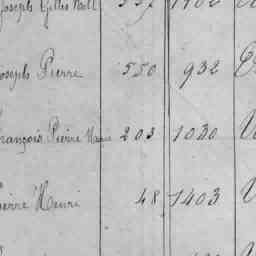 Joseph Gilles
Joseph Pierre 550 932
François Pierre Marie 203 1030
Pierre Henri 48 1403